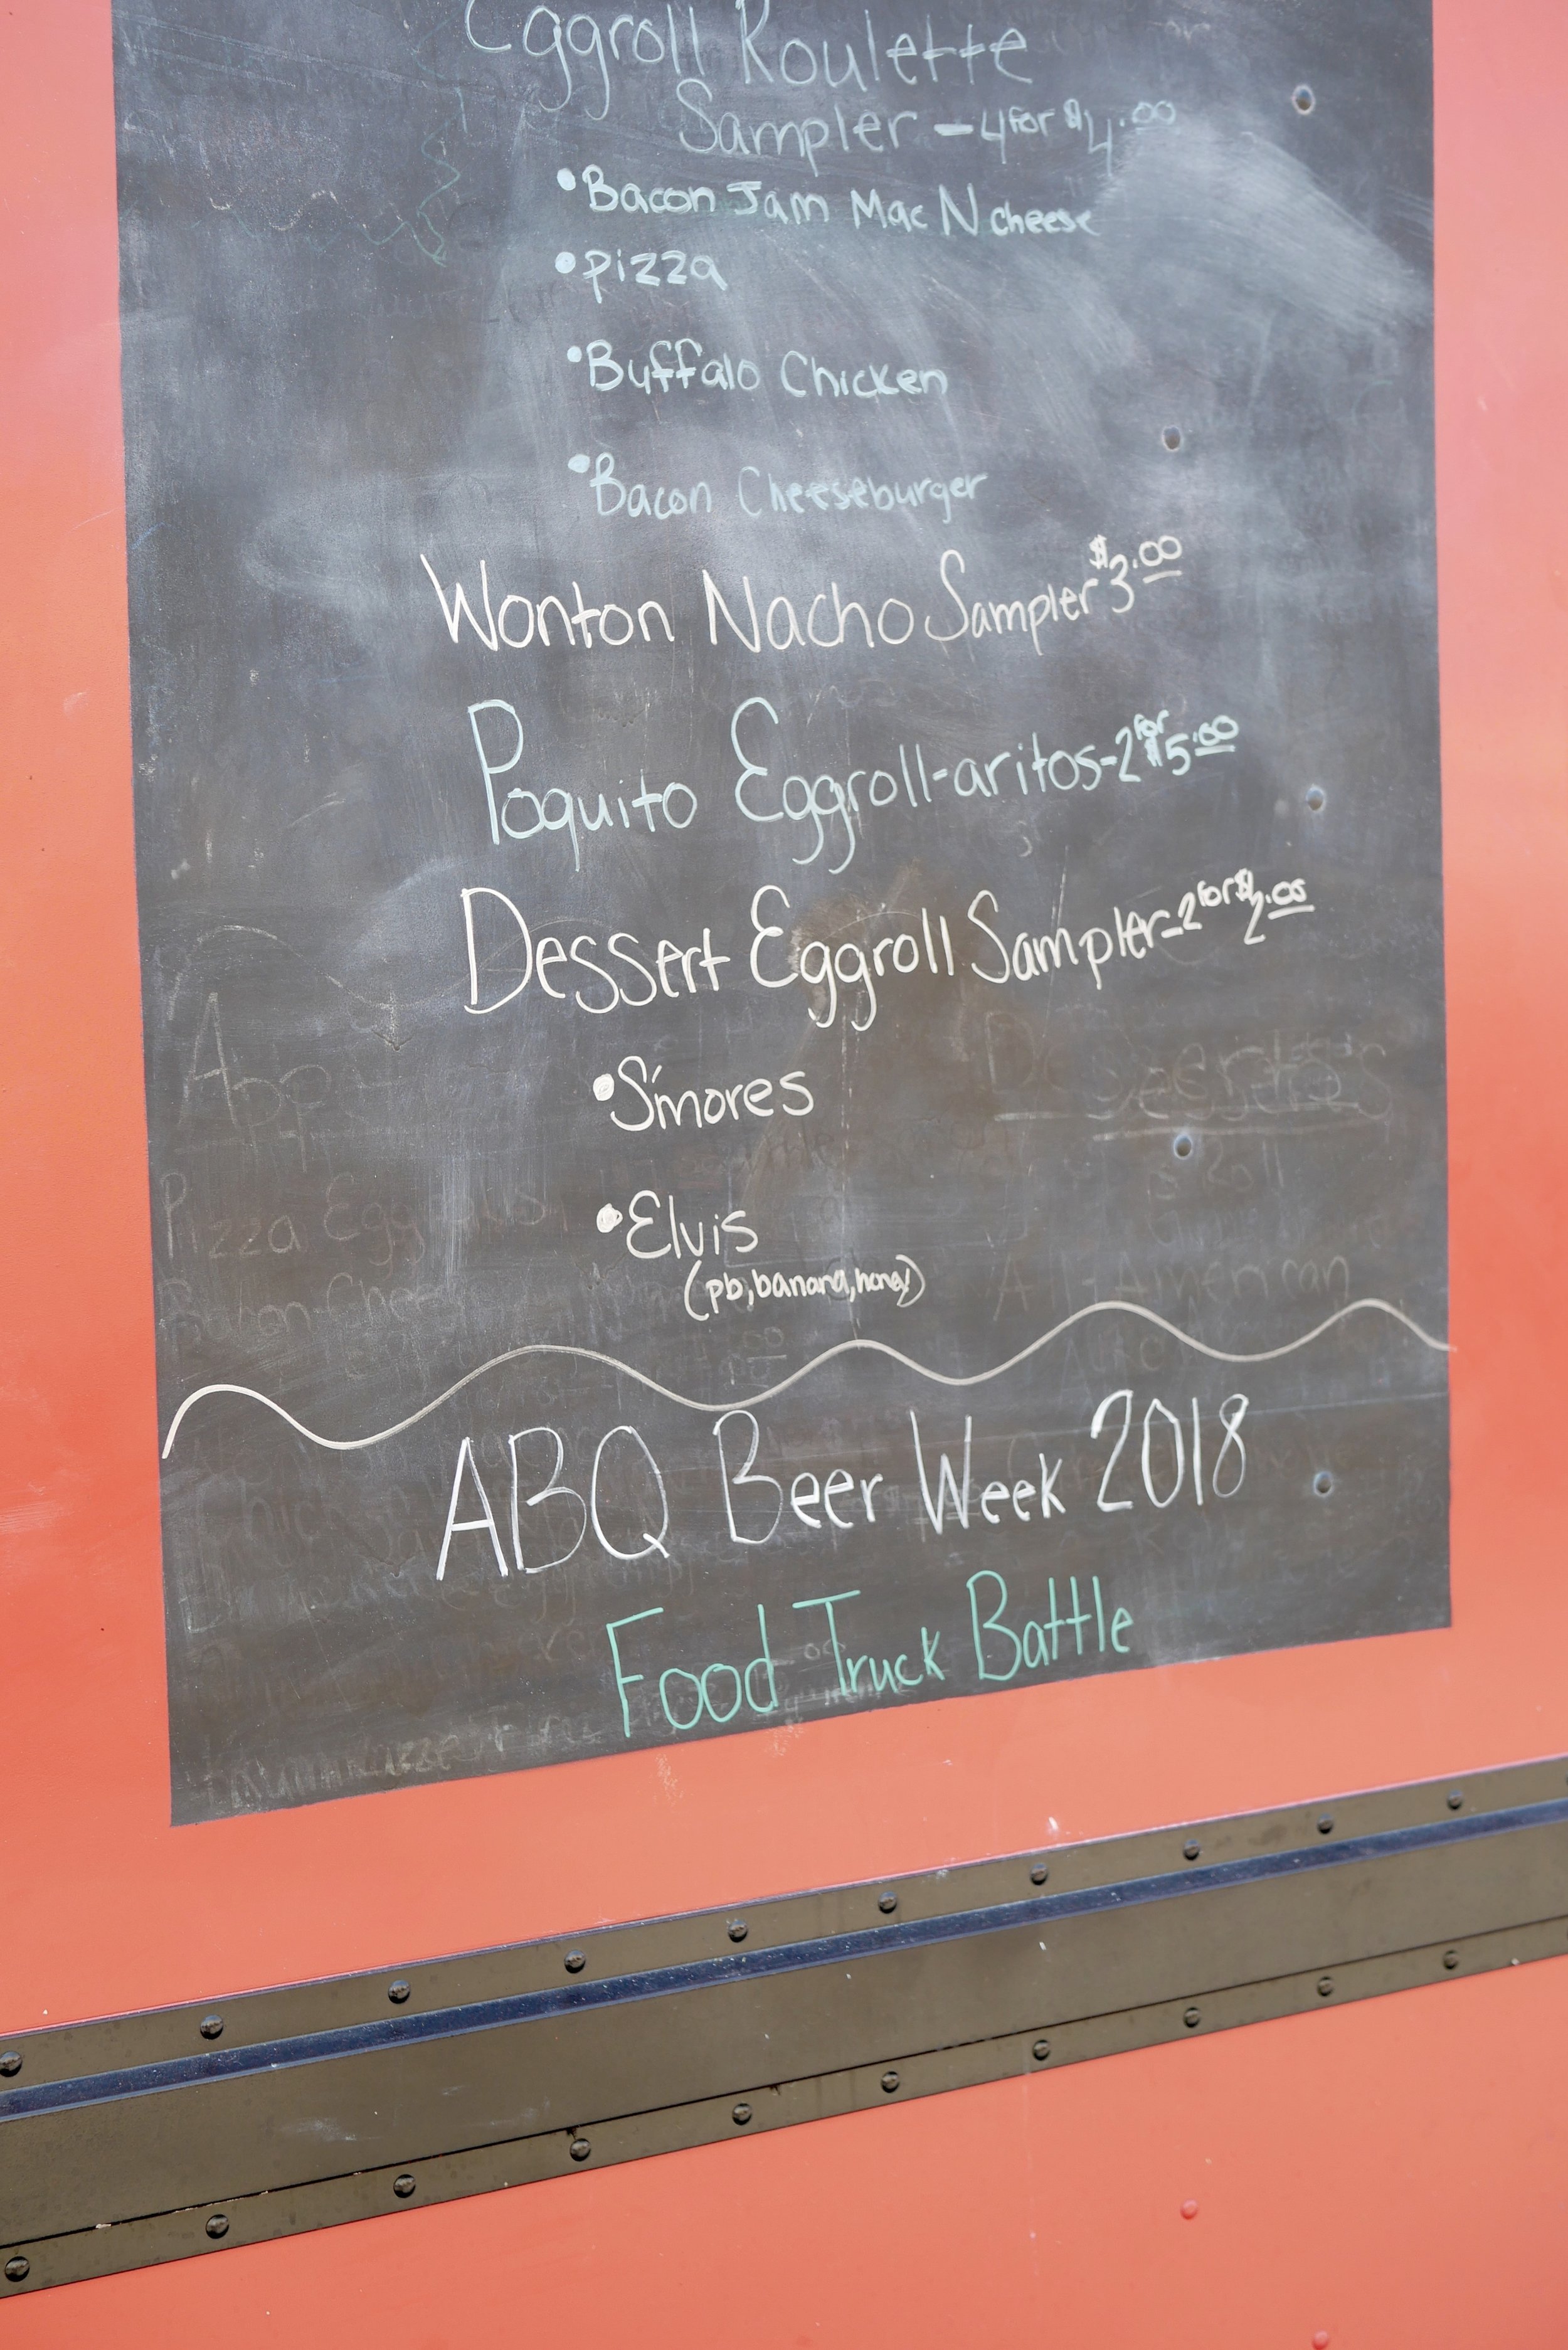 Eggroll Roulette
Sampler - 4 for $4.00
•Bacon Jam Mac N cheese
•pizza
•Buffalo Chicken
•Bacon Cheeseburger
Wonton Nacho Sampler $3.00
Poquito Eggroll-aritos-2 for $5.00
Dessert Eggroll Sampler-2 for $2.00
•S'mores
•Elvis
(pb, banana, honey)
ABQ Beer Week 2018
Food Truck Battle
App
Desserts
Pizza Egg
Bacon Chee
All-American